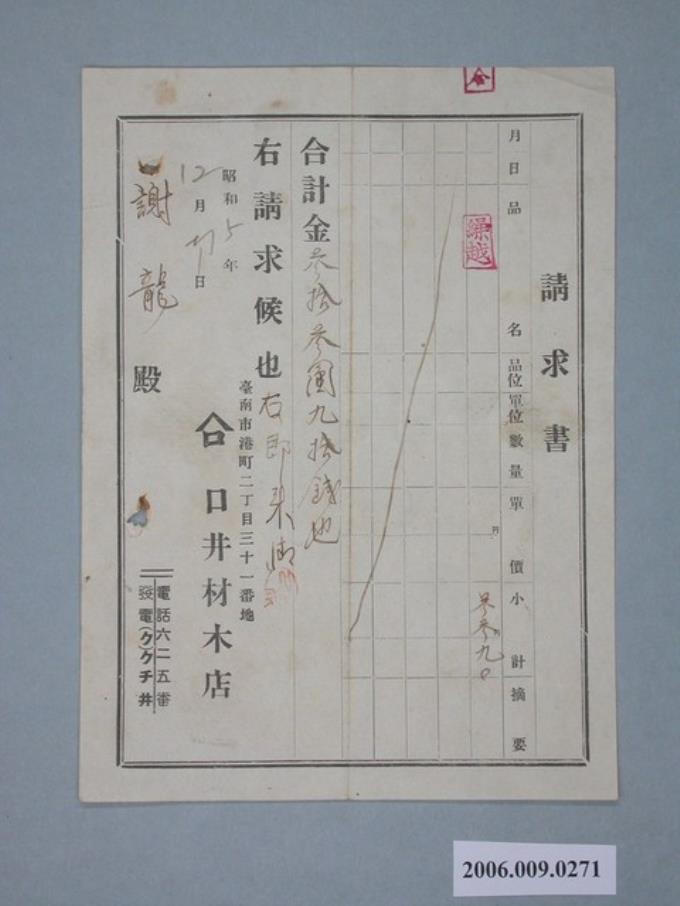 合
請求書
月日 品名 品位 單位 數量 單價 小計 摘要
繰越
円
参参九〇
合計金参拾参圓九拾錢也
右請求候也
昭和5年
12月 日
臺南市港町二丁目三十一番地
口井材木店
電話六二五番
發電(ク)クチ井
謝龍殿
2006.009.0271